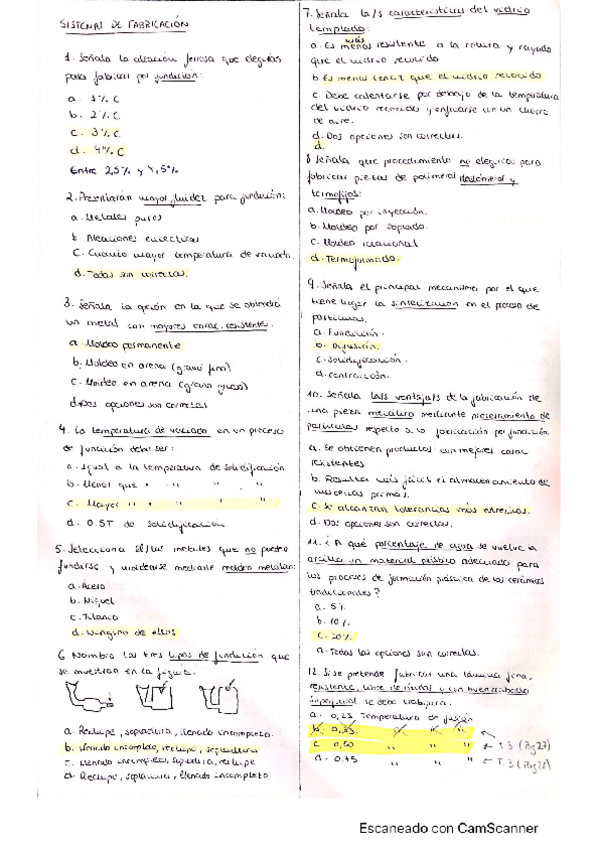 SISTEMAS DE FABRICACIÓN
1. Señala la aleación ferrosa que elegirías
para fabricar por fundición:
a. 1% C
b. 2% C
c. 3% C
d. 4% C
Entre 2,5% y 4,5%
2. Presentarán mayor fluidez para fundición:
a. Metales puros
b. Aleaciones eutécticas
c. Cuanto mayor temperatura de vaciado.
d. Todas son correctas.
3. Señala la opción en la que se obtendrá
un metal con mayores carac. resistentes.
a. Moldeo permanente
b. Moldeo en arena (grano fino)
c. Moldeo en arena (grano grueso)
d. Dos opciones son correctas
4. La temperatura de vaciado en un proceso
de fundición debe ser:
a. Igual a la temperatura de solidificación
b. Menor que " " " "
c. Mayor " " " "
d. 0.5T de solidificación
5. Selecciona el/los metales que no puedo
fundirse y moldearse mediante moldeo metálico:
a. Acero
b. Niquel
c. Titanio
d. Ninguno de ellos
6. Nombra los tres tipos de fundición que
se muestran en la figura.
a. Rechupe, sopladura, llenado incompleto.
b. llenado incompleto, rechupe, sopladura
c. llenado incompleto, sopladura, rechupe
d. Rechupe, sopladura, llenado incompleto
7. Señala la/s características del vidrio
templado:
más
a. Es menos resistente a la rotura y rayado
que el vidrio recocido
b. Es menos tenaz que el vidrio recocido
c. Debe calentarse por debajo de la temperatura
del vidrio recocido y enfriarse con un chorro
de aire.
d. Dos opciones son correctas.
d.
8. Señala que procedimiento no elegirías para
fabricar piezas de polimeral elastómeral y
termofijos:
a. Moldeo por inyección.
b. Moldeo por soplado.
c. Moldeo rotacional
d. Termoformado.
9. Señala el principal mecanismo por el que
tiene lugar la sinterización en el proceso de
partículas.
a. Fundición.
b. Difusión.
c. Solidificación.
d. contracción.
10. Señala la/s ventaja/s de la fabricación de
una pieza metálica mediante procesamiento de
partículas respecto a la fabricación por fundición.
a. Se obtienen productos con mejores carac.
resistentes
b. Resulta más fácil el almacenamiento de
materias primas.
c. Se alcanzan tolerancias más estrechas.
d. Dos opciones son correctas.
11. ¿A qué porcentaje de agua se vuelve la
arcilla un material plástico adecuado para
los procesos de formación plástica de las cerámicas
tradicionales?
a. 5%
b. 10%
c. 20%
d. Todas las opciones son correctas.
12. Si se pretende fabricar una lámina fina,
resistente, libre de óxidos y con buen acabado
superficial se debe trabajar a:
a. 0,25 Temperatura de fusión
b. 0,35 " " "
c. 0,50 " " " ← T.3 (Pag 27)
d. 0,75 " " " ← T.3 (Pag 28)
Escaneado con CamScanner